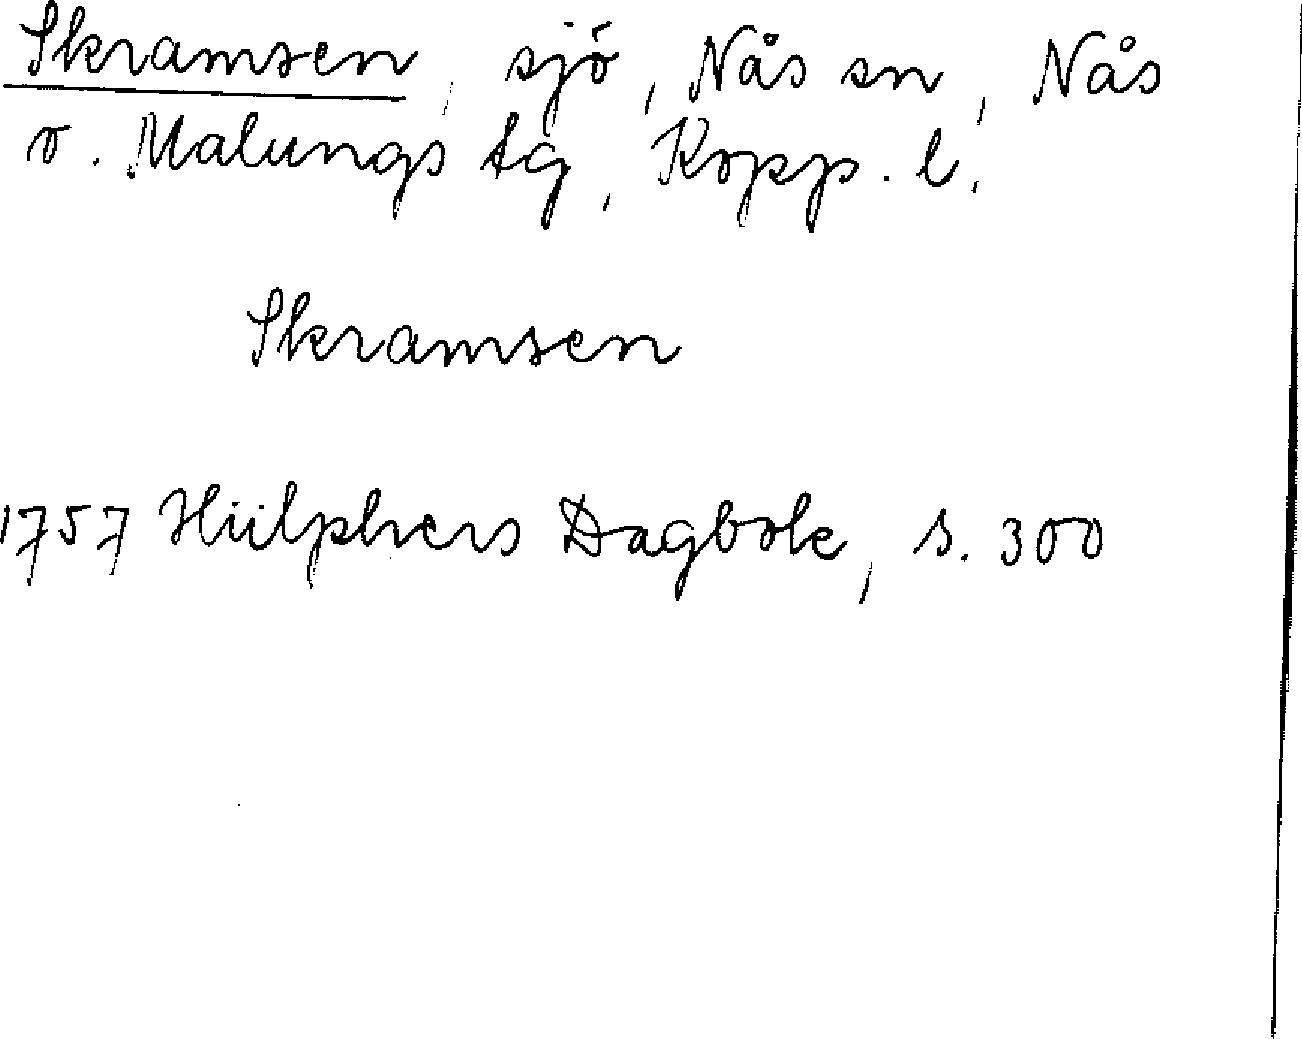 Skramsen, sjö, Nås sn, Nås
o. Malungs tg, Kopp. l.
Skramsen
1757 Hülphers Dagbok, s. 300